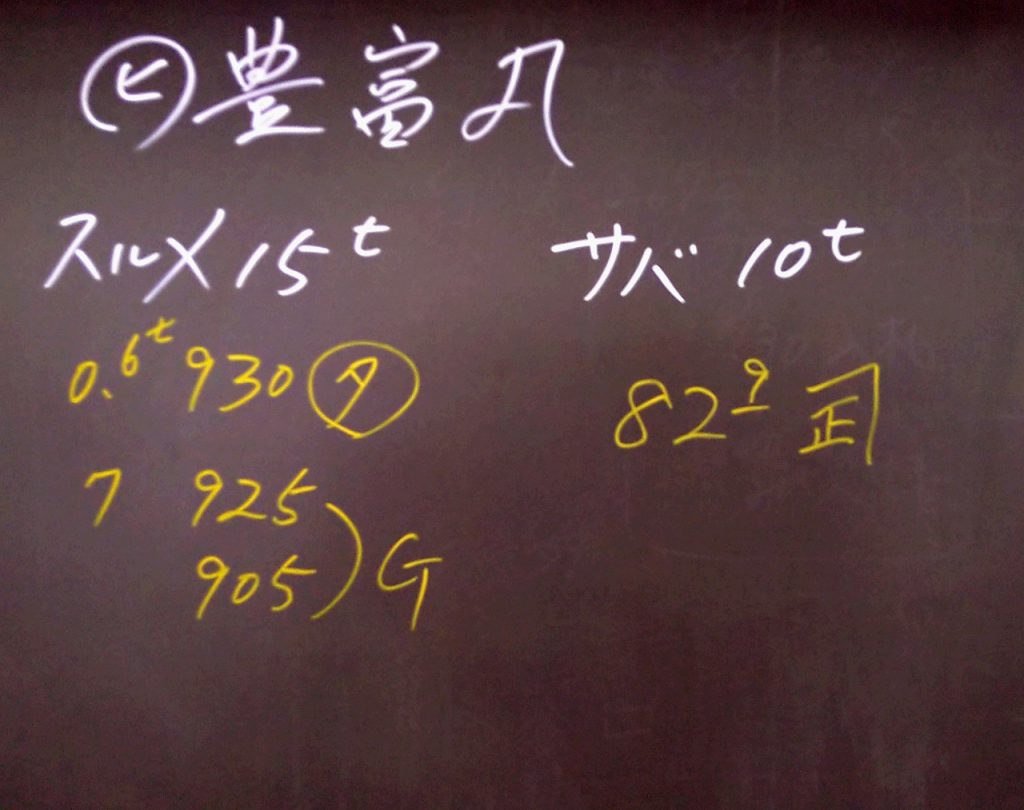 ㋪豊富丸
スルメ 15t サバ 10t
0.6t 930 ㋟ 82.9
7 925
905 ) G